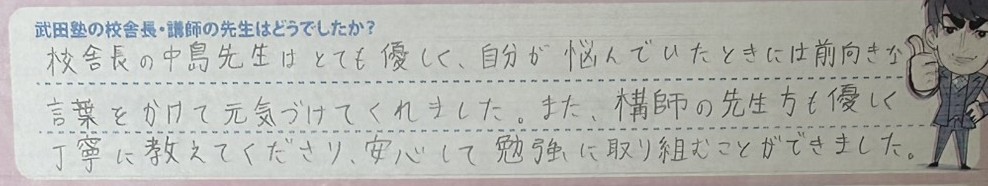 武田塾の校舎長・講師の先生はどうでしたか？
校舎長の中島先生はとても優しく、自分が悩んでいたときには前向きな
言葉をかけて元気づけてくれました。また、講師の先生方も優しく
丁寧に教えてくださり、安心して勉強に取り組むことができました。